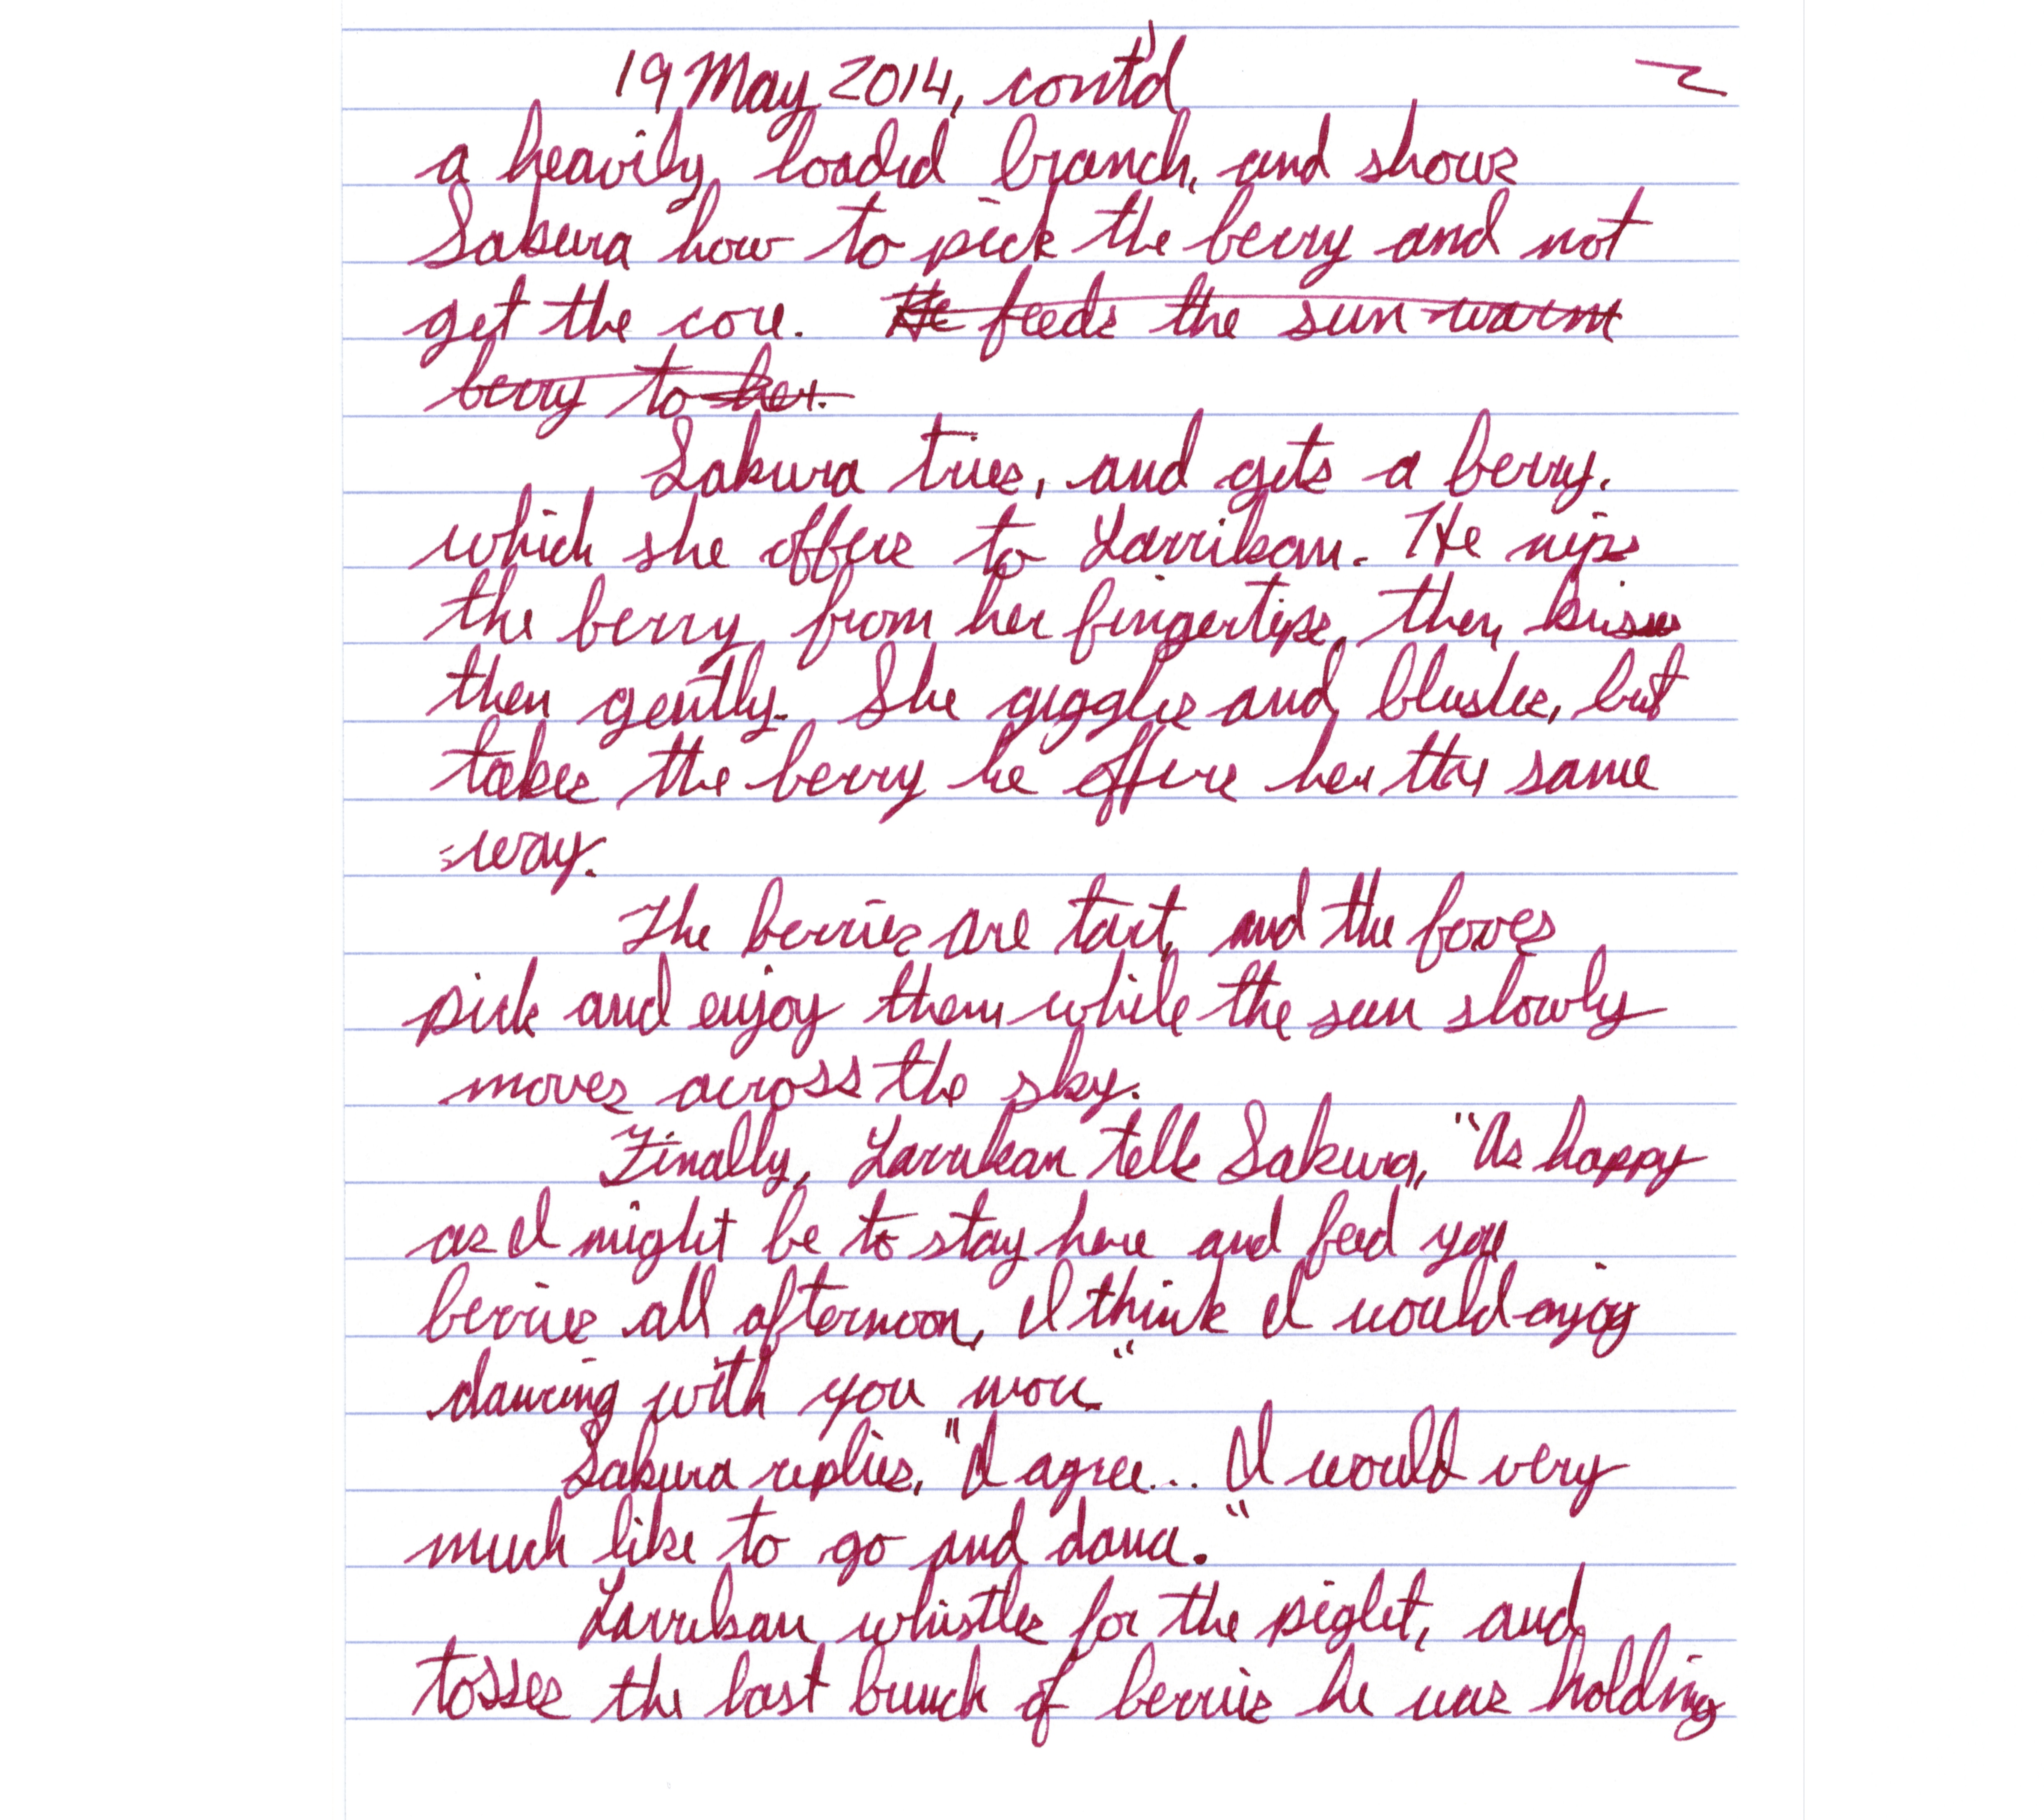 19 May 2014, cont'd 2
a heavily loaded branch, and shows
Sakura how to pick the berry and not
get the core. He feeds the sun-warm
berry to her.
Sakura tries, and gets a berry,
which she offers to Larrikan. He nips
the berry from her fingertips, then kisses
them gently. She giggles and blushes, but
takes the berry he offers her the same
way.
The berries are tart, and the foxes
pick and enjoy them while the sun slowly
moves across the sky.
Finally, Larrikan tells Sakura, "As happy
as I might be to stay here and feed you
berries all afternoon, I think I would enjoy
dancing with you more."
Sakura replies, "I agree... I would very
much like to go and dance."
Larrikan whistles for the piglet, and
tosses the last bunch of berries he was holding